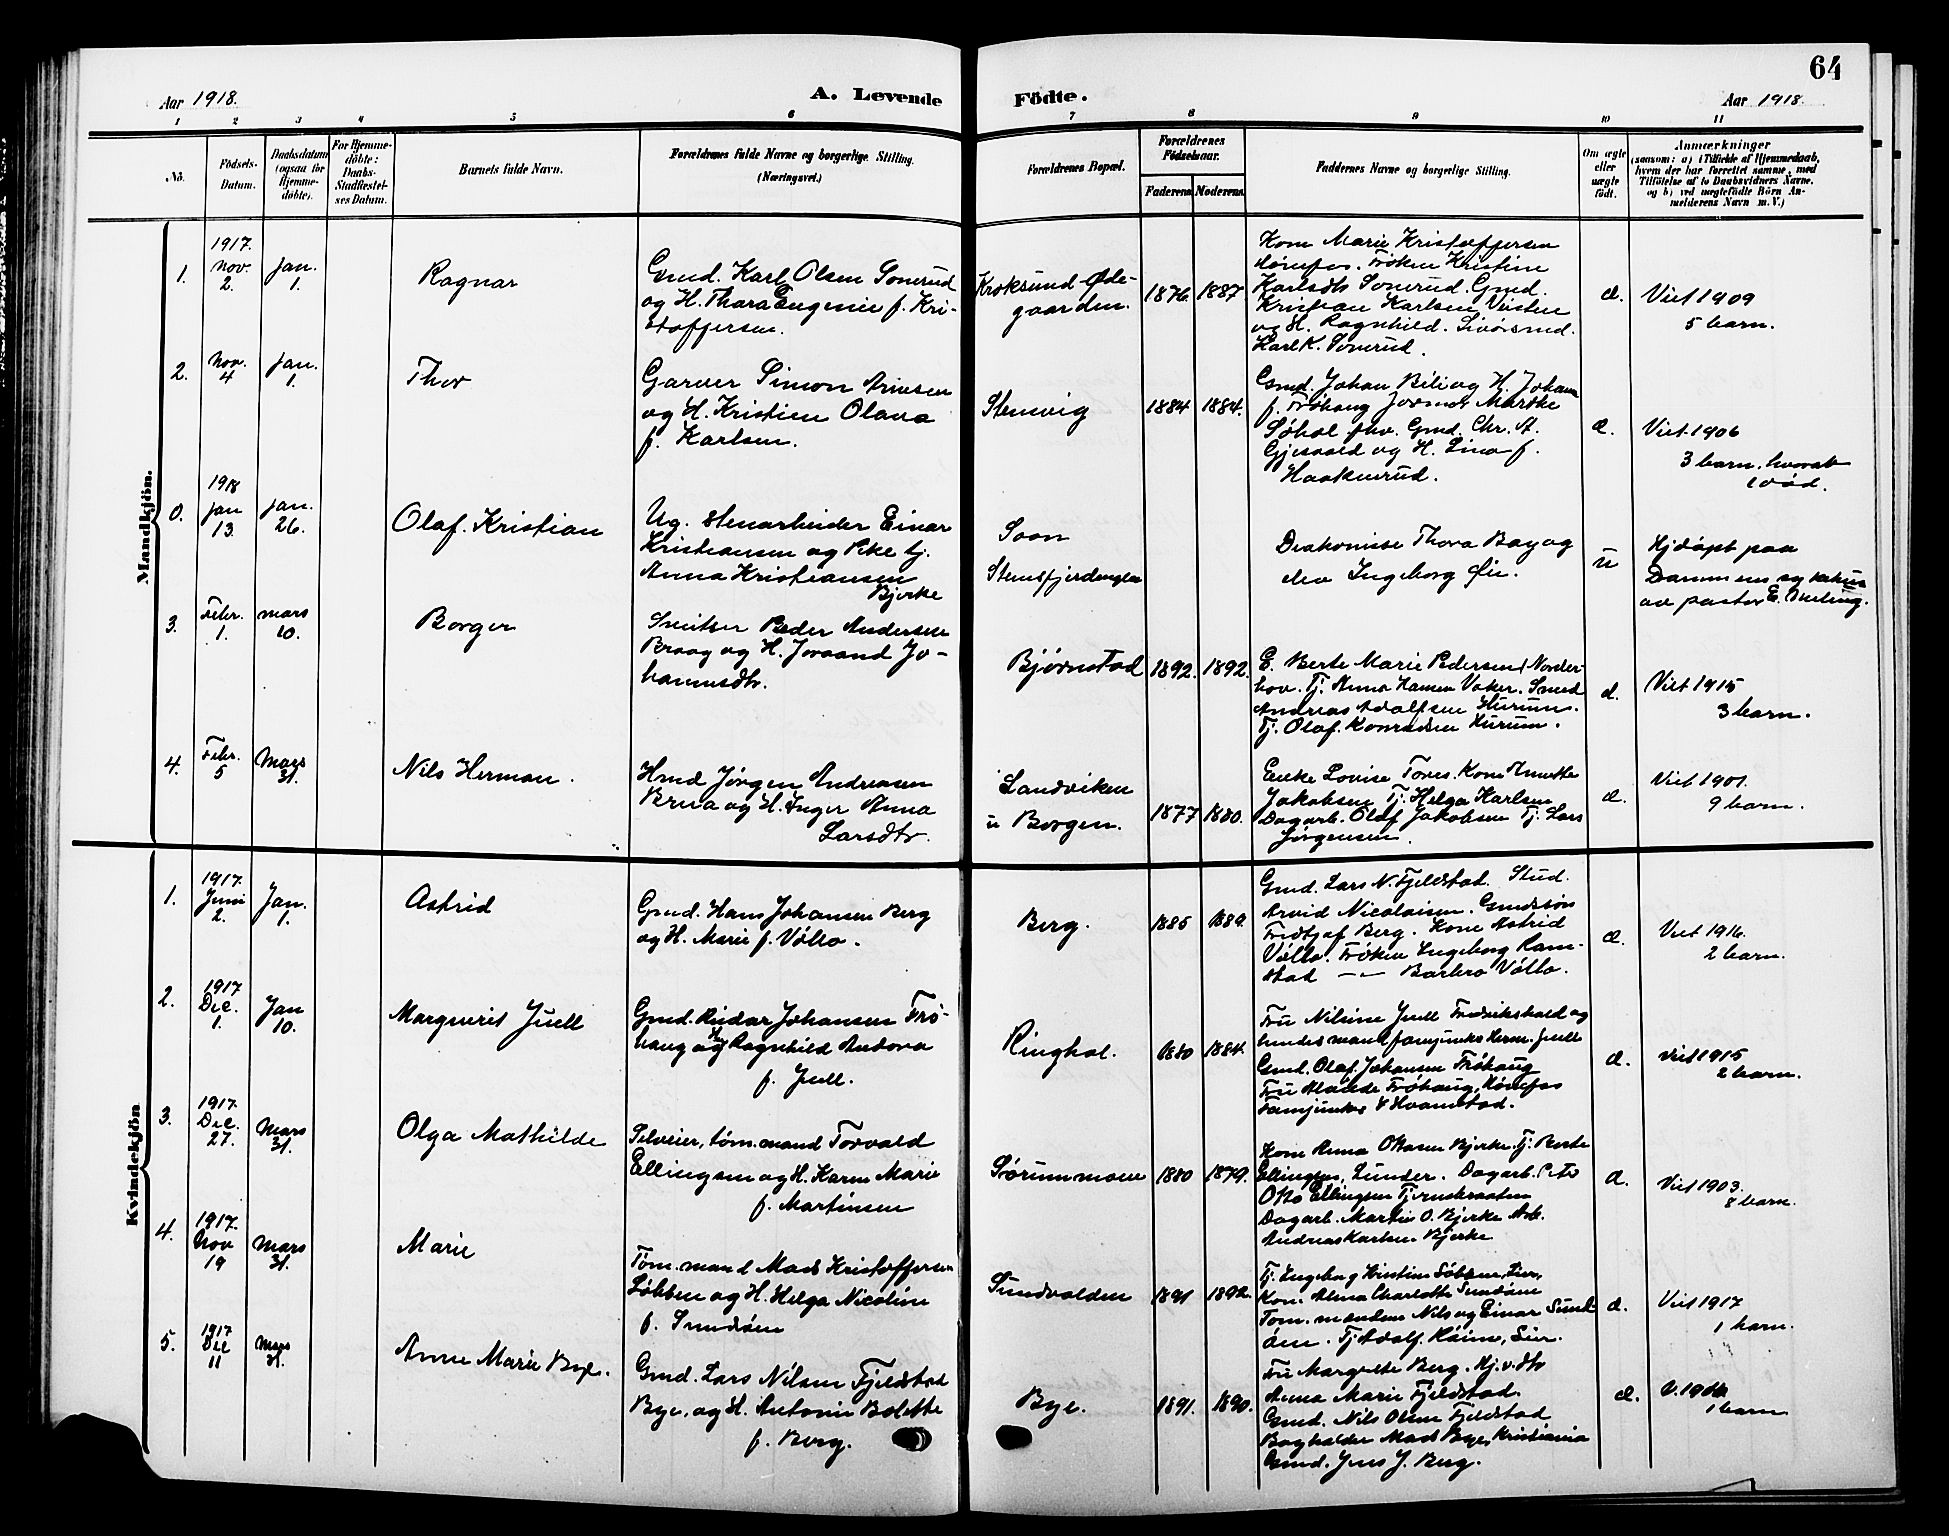 64
Aar 1918.
A. Levende
Födte.
Aar 1918.
1 2 3 4 5 6 7 8 9 10 11
No.
Födsels-
Datum.
Daabsdatum
(ogsaa for
Hjemme-
döbte).
For Hjemme-
döbte:
Daabs-
Stadfæstel-
ses Datum.
Barnets fulde Navn.
Forældrenes fulde Navne og borgerlige Stilling.
(Næringsvei.)
Forældrenes Bopæl.
Forældrenes
Födselsaar.
Faderens
Moderens
Faddernes Navne og borgerlige Stilling.
Om ægte
eller
uægte
födt.
Anmærkninger
(saasom: a) i Tilfælde af Hjemmedaab,
hvem der har forrettet samme, med
Tilföielse af to Daabsvidners Navne,
og b) ved uægtefödte Börn An-
melderens Navn m. V.)
Mandkjön.
1.
1917.
Nov.
2.
Jan.
1.
Ragnar
Gmd. Karl Olsen Sonerud
og H. Thara Eugenie f. Kri-
stoffersen.
Kroksund-Øde-
gaarden.
1876
1887
Kone Marie Kristoffersen
Hønefos. Frøken Kristine
Karlsdtr Sonerud. Gmd.
Kristian Karlsen
og H. Ragnhild.
Karl K. Sonerud.
æ.
Viet 1909
5 barn.
2.
Nov.
4
Jan.
1.
Thor
Garver Simon
og H. Kristien Olava
f. Karlsen.
Stensvig
1884
1884.
Gmd. Johan Bili og H. Johanne
f. Frøhaug Jordmor Marthe
Søhol. Gmd. Chr. A.
Gjesvold og H. Lina f.
Haakenrud.
æ.
Viet 1906
3 barn, hvorav
1 død.
0.
1918
Jan
13.
Jan.
26.
Olaf. Kristian
Ug. Stenarbeider Einar
Kristiansen og Pike tj.
Anna Kristiansen
Bjerke
Soon
Stensfjerdingen
Diakonisse Thora Bay og
elev Ingeborg Øie.
u
Hjdøpt paa
Drammens sykehus
av pastor E.
3.
Febr.
1.
Mars
10.
Borger
Sveitser Peder Andersen
Braag og H. Joraand Jo-
hannesdtr.
Bjørnstad
1892.
1892.
E. Berte Marie Pedersen, Norder-
hov. Tj. Anna Hansen Vaker. Smed
Andreas Adolfsen Hurum.
Tj. Olaf Konradsen Hurum.
æ.
Viet 1915
3 barn.
4.
Febr.
5
Mars
31.
Nils Herman.
Hmd Jørgen Andreasen
Brua og H. Inger Anna
Larsdtr.
Sandviken
u Borgen.
1877
1880.
Enke Lovise Tores. Kone Anette
Jakobsen Tj. Helga Karlsen
Dagarb. Olaf Jakobsen Tj. Lars
Jørgensen.
æ.
Viet 1901.
9 barn.
Kvindekjön
1.
1917.
Juni
2.
Jan.
1.
Astrid
Gmd. Hans Johansen Berg
og H. Marie f. Vøllo.
Berg.
1885
1889.
Gmd. Lars N. Fjeldstad. Stud.
Arvid Nicolaisen. Gmdssøn
Fridtjof Berg. Kone Astrid
Vøllo. Frøken Ingeborg Ram-
stad —"— Barbro Vøllo.
æ.
Viet 1916.
2 barn.
2.
1917
Dec.
1.
Jan
10.
Margueret Juell
Gmd. Reidar Johansen Frø-
haug og H. Ragnhild Andora
f. Juell.
Ringhol.
1880
1884.
Fru Nilsine Juell Fredrikshald og
lendsmand famjunker Herm. Juell
Gmd. Olaf Johansen Frøhaug
Fru Frøhaug, Hønefos
Famjunker Hvamstad.
æ.
Viet 1915
2 barn.
3.
1917.
Dec.
27.
Mars
31.
Olga Mathilde
Selveier, tøm.mand Torvald
Ellingsen og H. Karen Marie
f. Martinsen
Sørummoen
1880
1879.
Kone Anna Olausen Bjerke. Tj. Berte
Ellingsen, Lunder. Dagarb.
Otto Ellingsen
Dagarb. Martin O. Bjerke Arb.
Andreas Karlsen Bjerke
æ.
Viet 1903.
8 barn.
4.
1917.
Nov
19
Mars
31.
Marie
Tøm.mand Mads Kristoffersen
Løbben og H. Helga Nicoline
f. Sundøen
Sundvolden
1891
1892.
Tj. Ingeborg Kristine Løbben, Lier,
Kone Alma Charlotte Sundøen
Tøm.mændene Nils og Einar Sund-
øen. Tj. Adolf, Lier.
æ.
Viet 1917
1 barn.
5.
1917
Dec
11
Mars
31.
Anne Marie Bye.
Gmd. Lars Nilsen Fjeldstad
Bye, og H. Antonie Bolette
f. Berg.
Bye.
1891.
1890.
Fru Margrethe Berg. Hj.v. dtr
Anna Marie Fjeldstad.
Gmd. Nils Olsen Fjeldstad
Bogholder Mads Bye, Kristiania
Gmd. Jens J. Berg.
æ.
V. 1916
1 barn